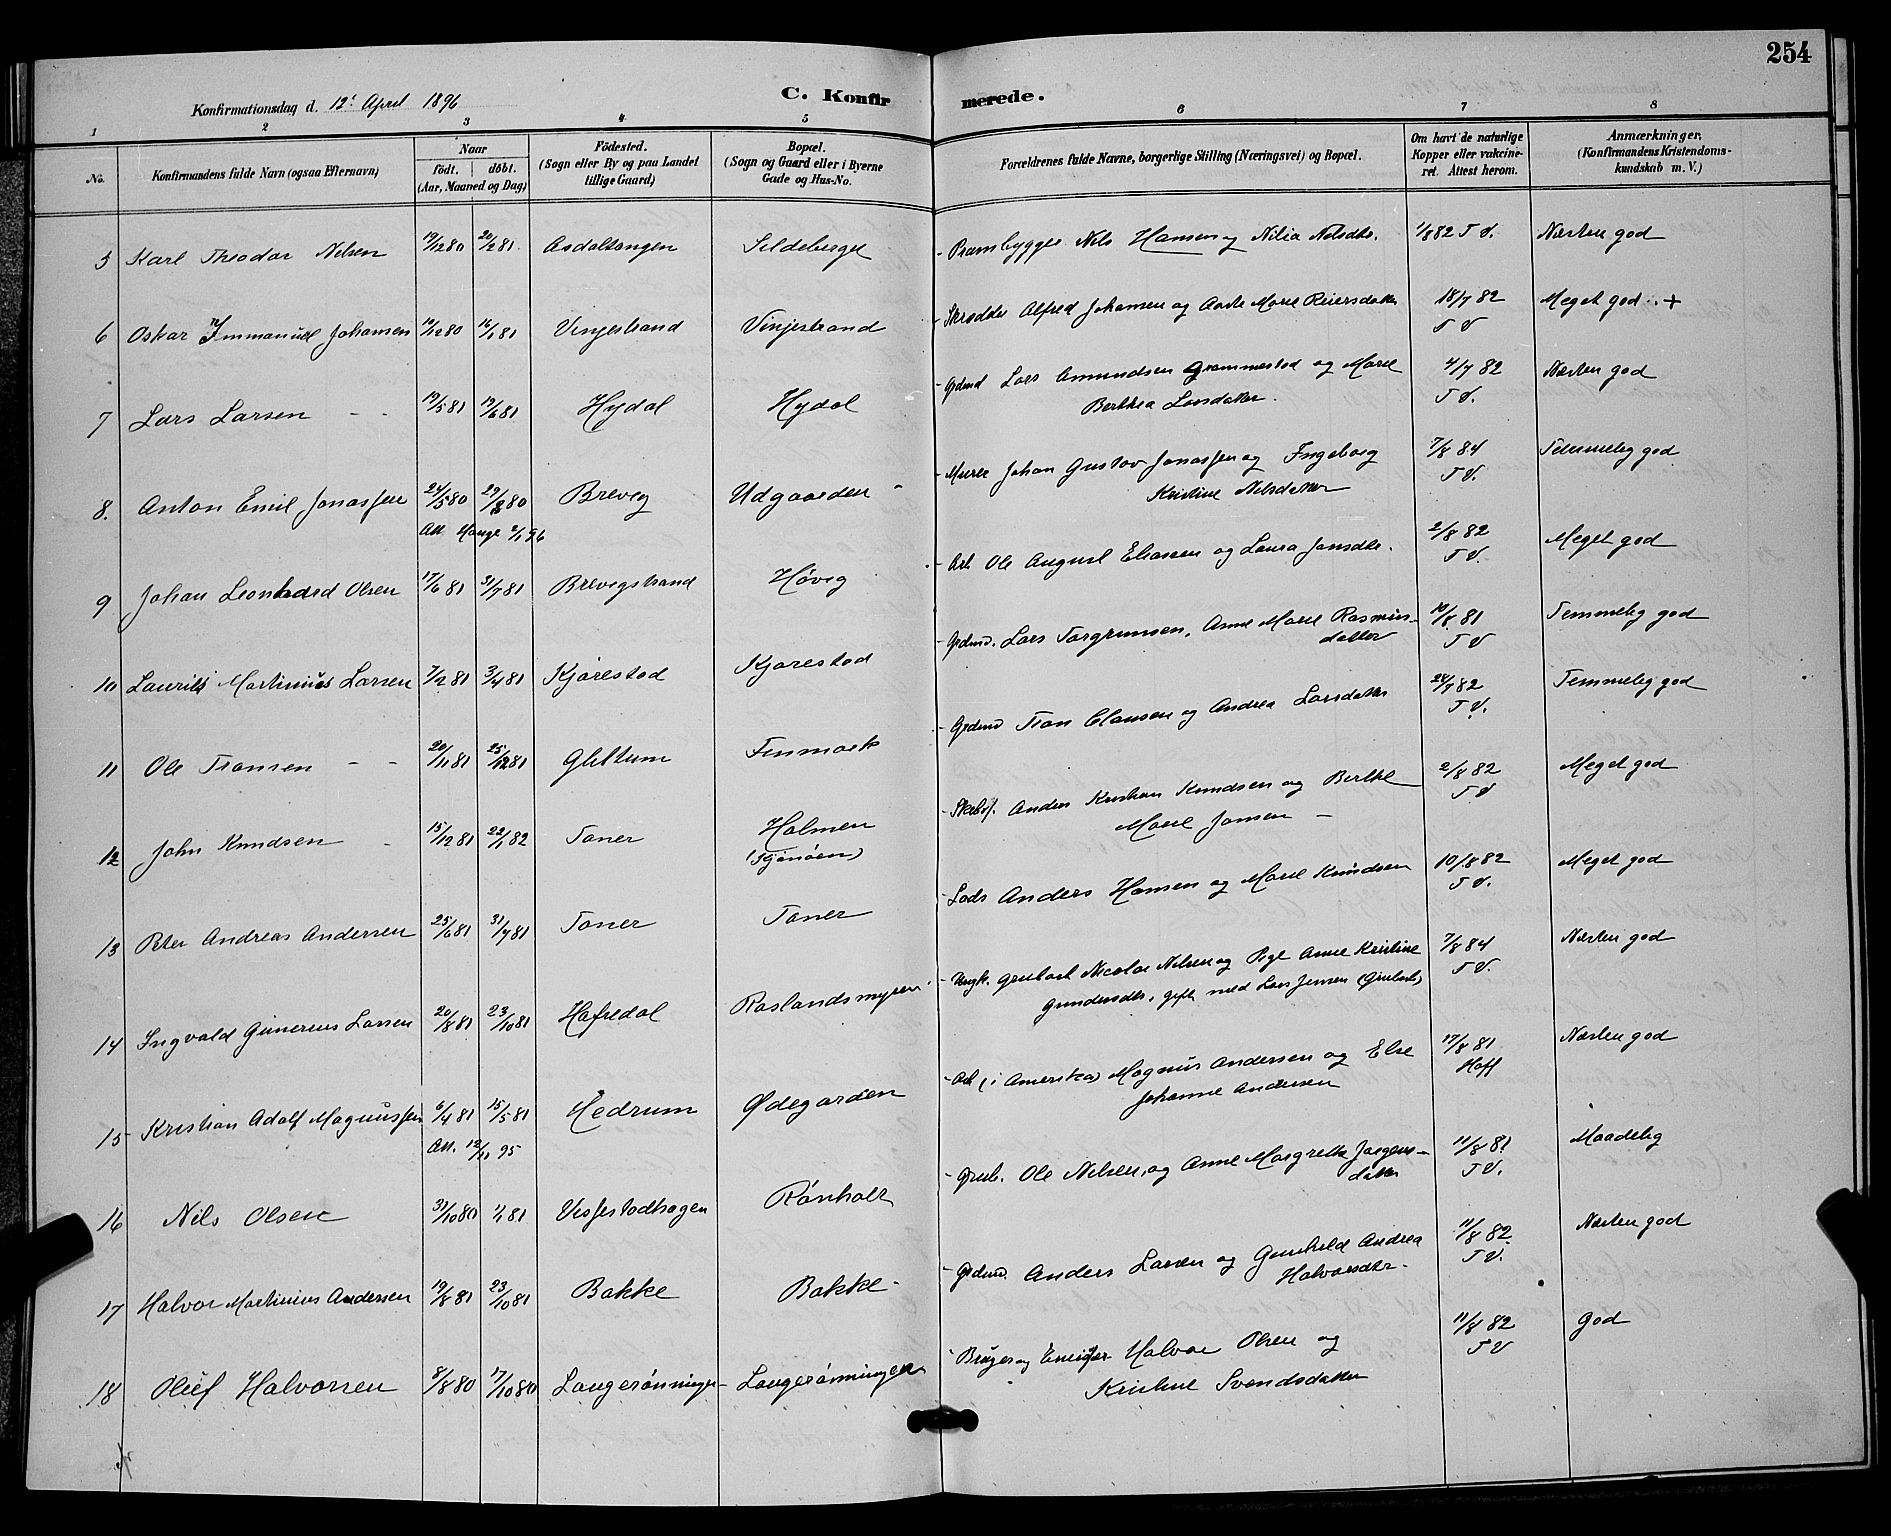 254
Konfirmationsdag d. 12' April 1896
C. Konfirmerede.
1 2 3 4 5 6 7 8
No.
Konfirmandens fulde Navn (ogsaa Efternavn)
Naar
født. døbt.
(Aar, Maaned og Dag)
Fødested.
(Sogn eller By og paa Landet
tillige Gaard)
Bopæl.
(Sogn og Gaard eller i Byerne
Gade og Hus-No.
Forældrenes fulde Navne, borgerlige Stilling (Næringsvei) og Bopæl.
Om havt de naturlige
Kopper eller vakcine-
ret. Attest herom.
Anmærkninger.
(Konfirmandens Kristendoms-
kundskab m. V.)
5 Karl Theodor Nilsen 19/12 80 20/2 81 Asdaltangen Sildeberget Prambygger Nils Hansen og Nilia Nilsdtr. 1/8 82 T V. Næsten god
6 Oskar Immanuel Johansen /12 80 16/1 81 Vinjestrand Vinjestrand Skrædder Alfred Johansen og Aaste Marie Reiersdatter 18/7 82 Meget god +
T V
7 Lars Larsen - - 19/5 81 19/6 81 Hydal Hydal Gdmd Lars Amundsen Grammestad og Maren 4/7 82 Næsten god
Berthea Larsdatter. T V.
8. Anton Emil Jonassen 24/5 80 29/8 80 Brevig Udgaarden Murer Johan Gustav Jonassen og Ingeborg 7/8 84 Temmelig god
Kristine Nilsdatter T V.
Att Hauge 2/1 96
9 Johan Leonhard Olsen 17/6 81 31/7 81 Brevigstrand Høvig Arb Ole August Eliassen og Laura Jansdtr. 2/8 82 Meget god
T V.
10 Laurits Martinius Larsen 7/2 81 3/4 81 Kjørestad Kjørestad Gdmd. Lars Torgrimsen, Anne Marie Rasmus- 10/8 81 Temmelig god
datter T V
11 Ole Fransen - - 20/11 81 25/12 81 Glittum Finmark Gdmd Fran Clausen og Andrea Larsdatter 28/7 82 Temmelig god
T V.
12 John Knudsen - 15/12 81 22/1 82 Toner Holmen Skibsf. Anders Kristian Knudsen og Berthe 2/8 82 Meget god
(Kjønøen) Marie Jansen - T V
13 Peter Andreas Andersen 25/6 81 31/7 81 Toner Toner Lods Anders Hansen og Maren Knudsen 10/8 82 Meget god
T V.
14 Ingvald Gunerius Larsen 20/8 81 23/10 81 Hafredal Raslandsmyren Ungk. Grubarb Nicolai Nilsen og Pige Anne Kristine 7/8 84 Næsten god
Gundersdtr, gift med Lars Jensen (Grubarb) T V.
15 Kristian Adolf Magnussen 6/4 81 15/5 81 Hedrum Ødegarden Arb (i Amerika) Magnus Andersen og Else 17/8 81 Næsten god
Johanne Andersen Hoff
Att. 12/11 95
16 Nils Olsen 31/10 80 1/1 81 Vissestadhagen Rønholt Grub. Ole Nilsen, og Anne Margrethe Jørgens- 11/8 81 Maadelig
datter T V.
17 Halvor Martinius Andersen 19/8 81 23/10 81 Bakke Bakke Gdmd. Anders Larsen og Gunhild Andrea 11/8 82 Næsten god
Halvorsdtr. T V.
18 Oluf Halvorsen 8/8 80 17/10 80 Langerønningen Langerønningen Bruger og Halvor Olsen og 11/8 82 god
Kristine Svendsdatter T V